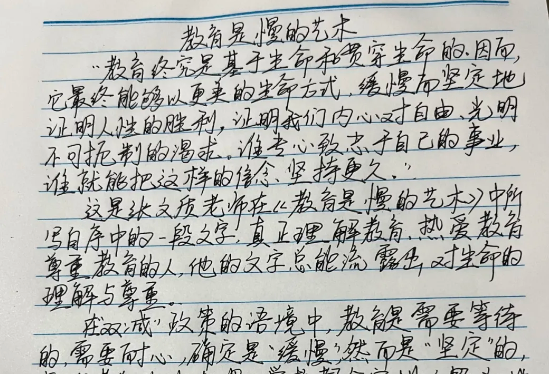 教育是慢的艺术
“教育终究是基于生命和贯穿生命的,因而,
它最终能够以更美的生命方式,缓慢而坚定地
证明人性的胜利,证明我们内心对自由、光明
不可扼制的渴求。谁专心致志于自己的事业,
谁就能把这样的信念坚持更久。”
这是张文质老师在《教育是慢的艺术》中所
写自序中的一段文字,真正理解教育、热爱教育
尊重教育的人,他的文字总能流露出对生命的
理解与尊重。
在“双减”政策的语境中,教育是需要等待
的,需要耐心,确定是“缓慢”然而是“坚定”的,